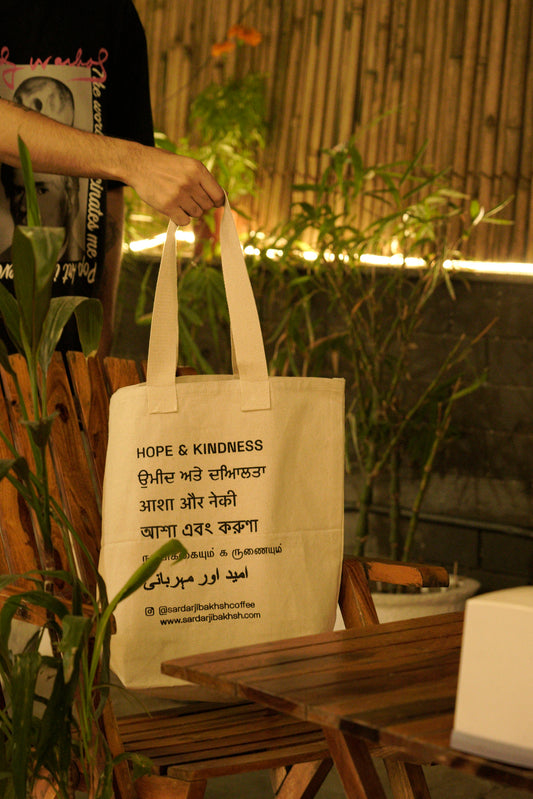 HOPE & KINDNESS
ਉਮੀਦ ਅਤੇ ਦਇਆਲਤਾ
आशा और नेकी
আশা এবং করুণা
கருணையும்
امید اور مہربانی
@sardarjibakhshcoffee
www.sardarjibakhsh.com